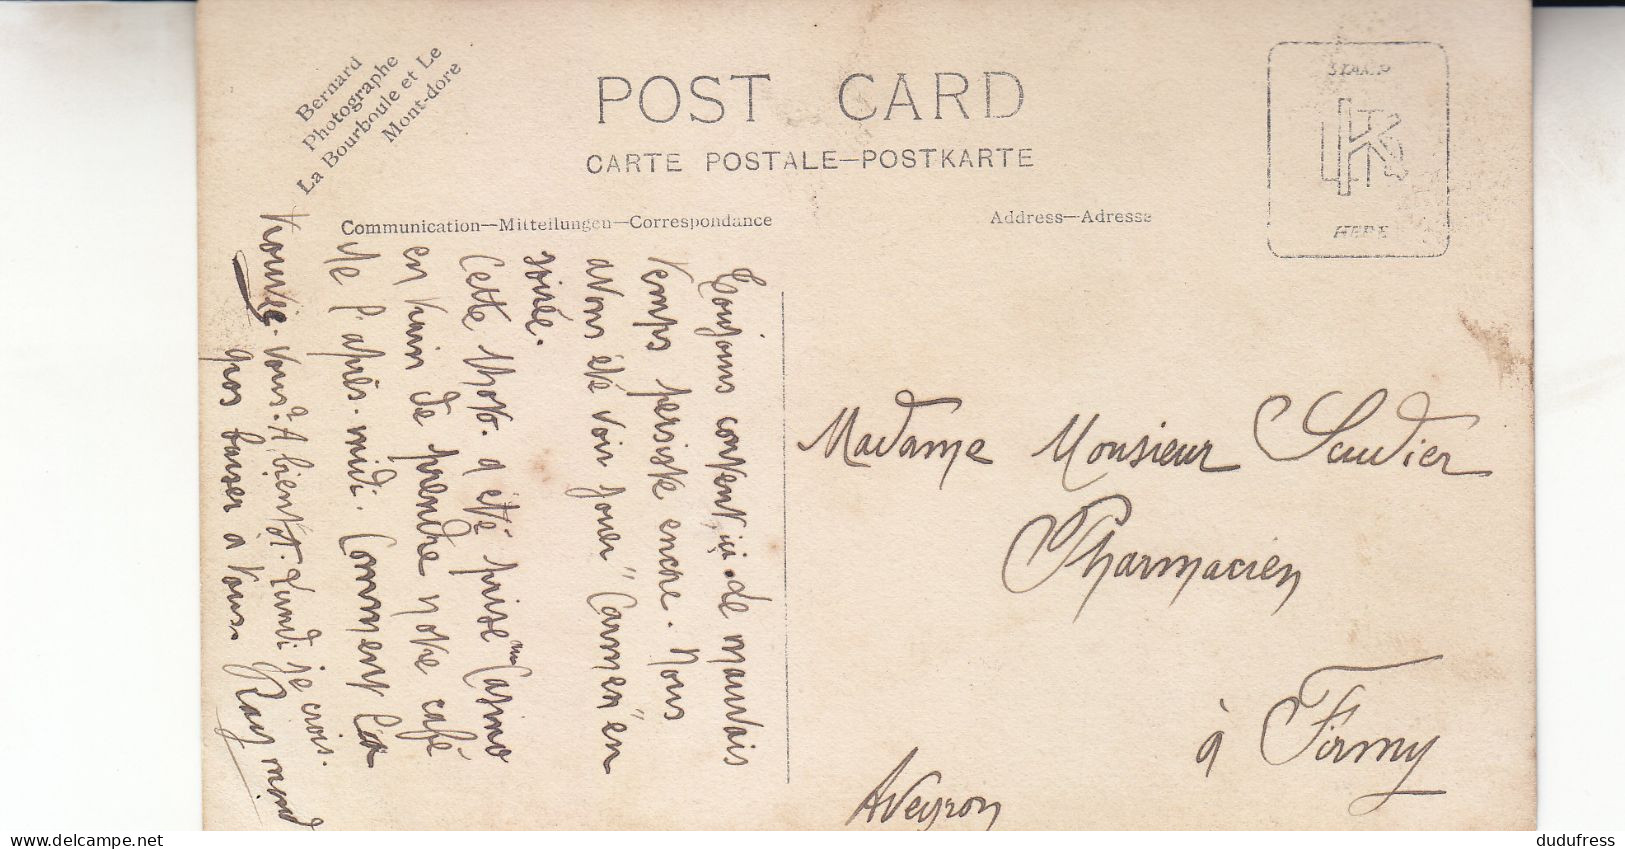 Bernard
Photographe
La Bourboule et Le
Mont-dore
POST CARD
CARTE POSTALE—POSTKARTE
Communication—Mitteilungen—Correspondance
Address—Adresse
STAMP
HERE
Toujours content ici. Le mauvais
temps persiste encore. Nous
avons été voir jouer "Carmen" en
soirée.
Cette photo. a été prise au Casino
en train de prendre notre café
de l'après-midi. Comment la
trouvez-vous? A bientôt. Lundi je crois.
gros baiser à tous.
Raymond
Madame Monsieur
Pharmacien
à Firmy
Aveyron
www.delcampe.net
dudufress